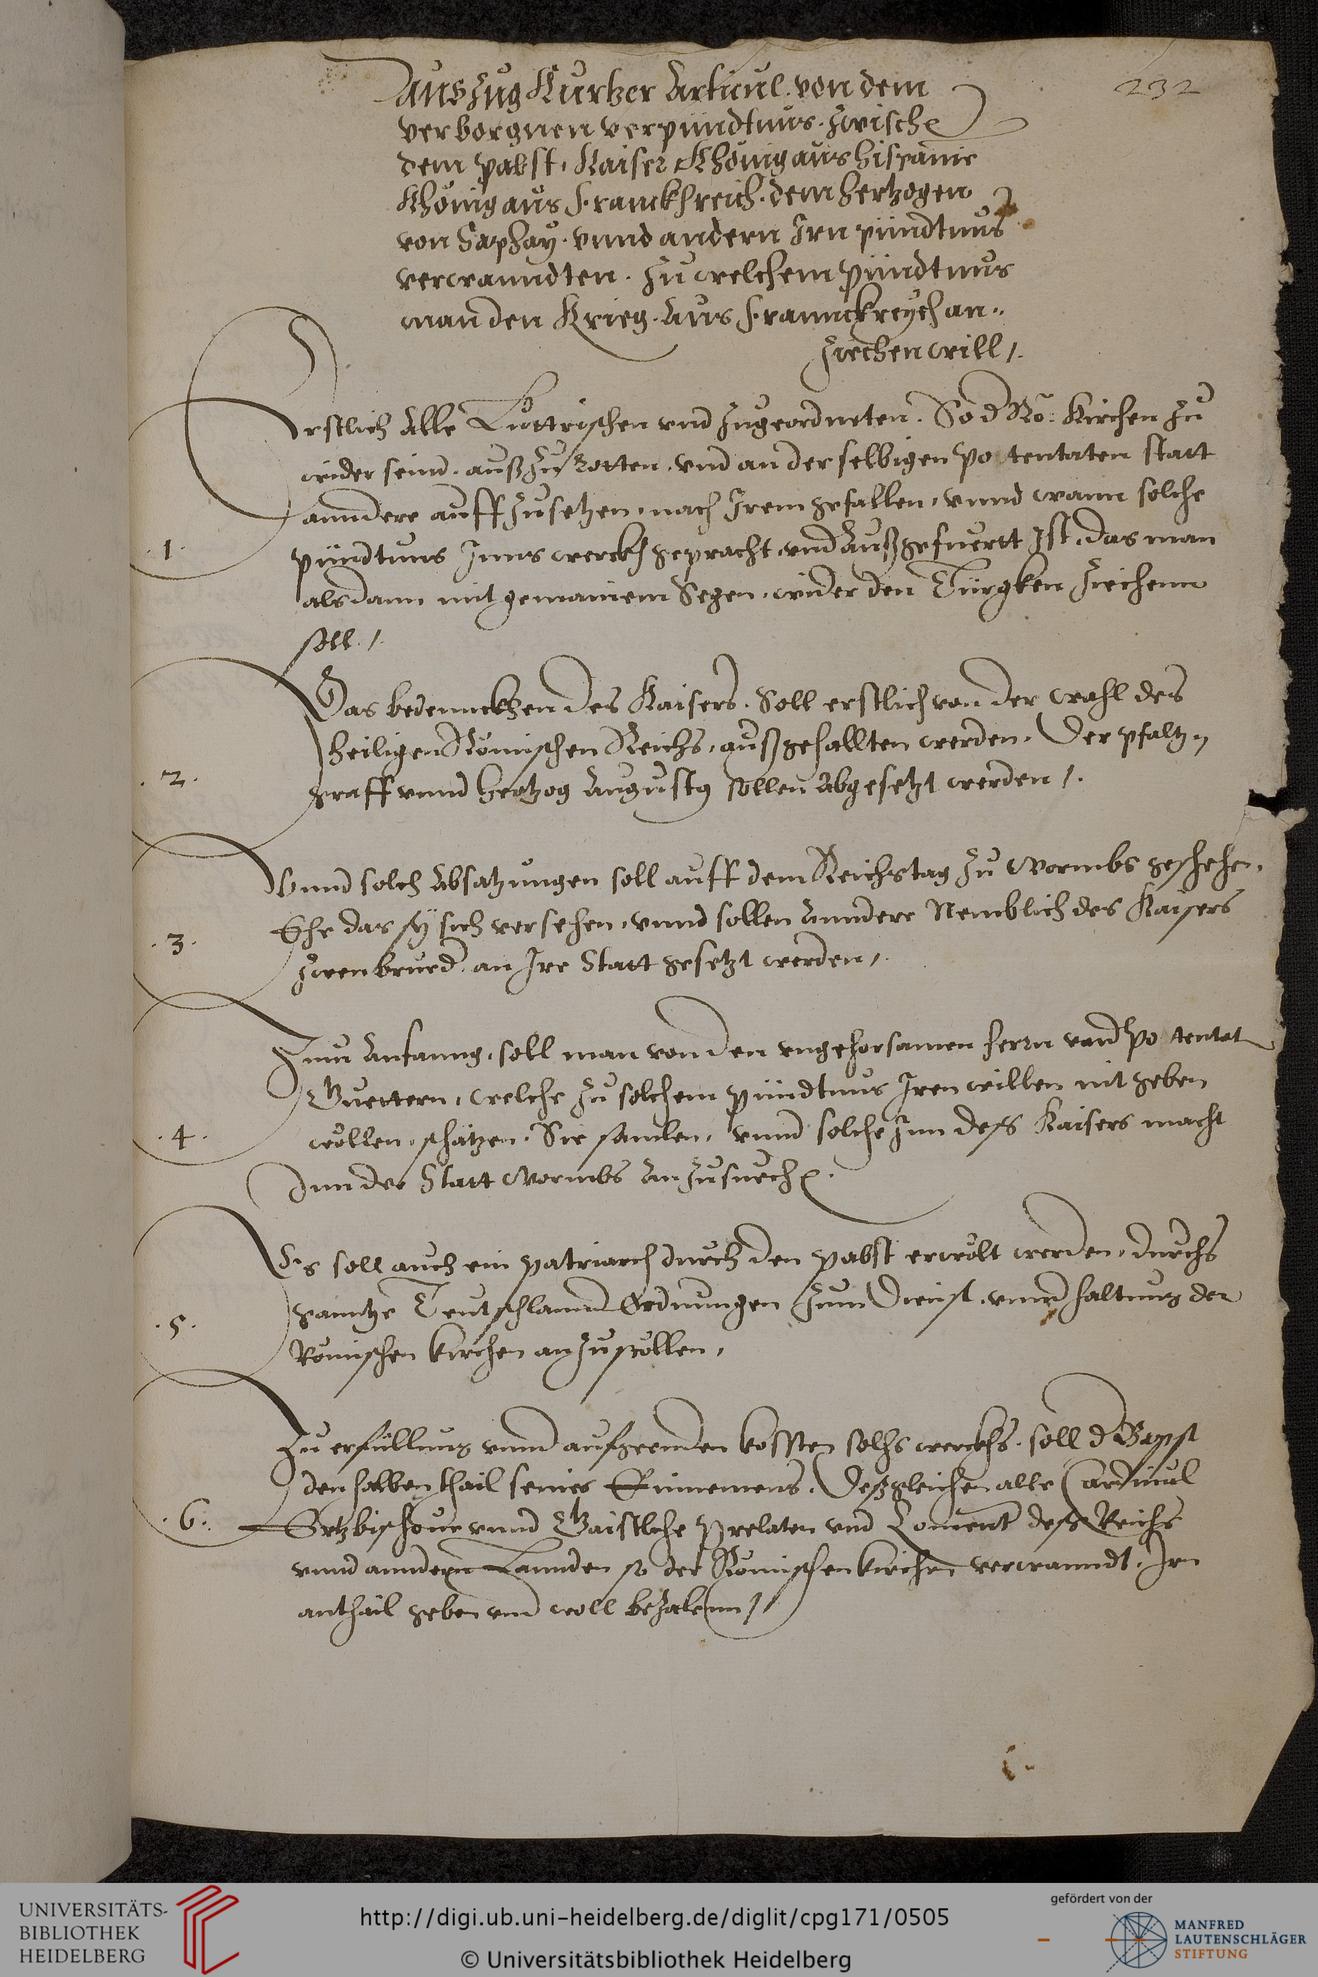 232
Auszug Kurtzer Articul. von dem
verborgnen verpündtnus. zwische
dem pabst, Kaiser Khönig aus hispanie
Khönig aus Franckhreich. dem hertzogen
von Saphay. vnnd andern Irn pündtnus
verwanndten. zu welchem pündtnus
man den Krieg. Aus Franncckreych an..
ziechen will /.
Erstlich Alle Luttrischen vnd zugeordneten. So d Rö: Kirchen zu
wider seind. außzu Rotten. vnd an derselbigen potentaten statt
anndere auff zusetzen, nach Irem gefallen, vnnd wann solche
.1.
pündtnus Inns werckh gepracht vnd Außgefuertt Ist, das man
alsdann mit gemainem Segen, wider den Türgken ziechenn
soll. /.
Das bedennckhen des Kaisers. Soll erstlich von der wahl des
heiligen Römischen Reichs, außgehallten werden. Der pfaltz,,
.2.
graff vnnd hertzog Augustus sollen Abgesetzt werden /.
Vnnd solch Absatzungen soll auff dem Reichstag zu Wormbs geschehe.
Ehe das sÿ sich versehen, vnnd sollen Anndere Nemblich des Kaisers
.3.
zwen brued. an Ire Statt gesetzt werden /.
Zum Anfanng, soll man von den vngehorsamen herrn vnd potentat
Guettern, welche zu solchem pündtnus Iren willen nit geben
.4.
wöllen, schätzen. Sie samlen, vnnd solche Inn deß Kaisers macht
Inn der Statt Wormbs Anzusuech.
Es soll auch ein patriarch durch den pabst erwölt werden, durchs
ganntze Teutschlannd Ordnungen zum Dienst vnnd haltung der
.5.
Römischen kirchen anzustöllen,
Zu erfüllung vnnd aufgeenden kossten solchs werckhs. soll d Bapst
den halben thail seines Einnemens. Deßgleichen alle Cardinäl
.6.
Ertzbischoue vnnd Gaistliche Prelaten vnd deß Reichs
vnnd anndern Lannden so der Römischen kirchen verwanndt. Irn
anthail geben vnd woll bezalenn /.
UNIVERSITÄTS-
BIBLIOTHEK
HEIDELBERG
http://digi.ub.uni-heidelberg.de/diglit/cpg171/0505
© Universitätsbibliothek Heidelberg
gefördert von der
MANFRED
LAUTENSCHLÄGER
STIFTUNG